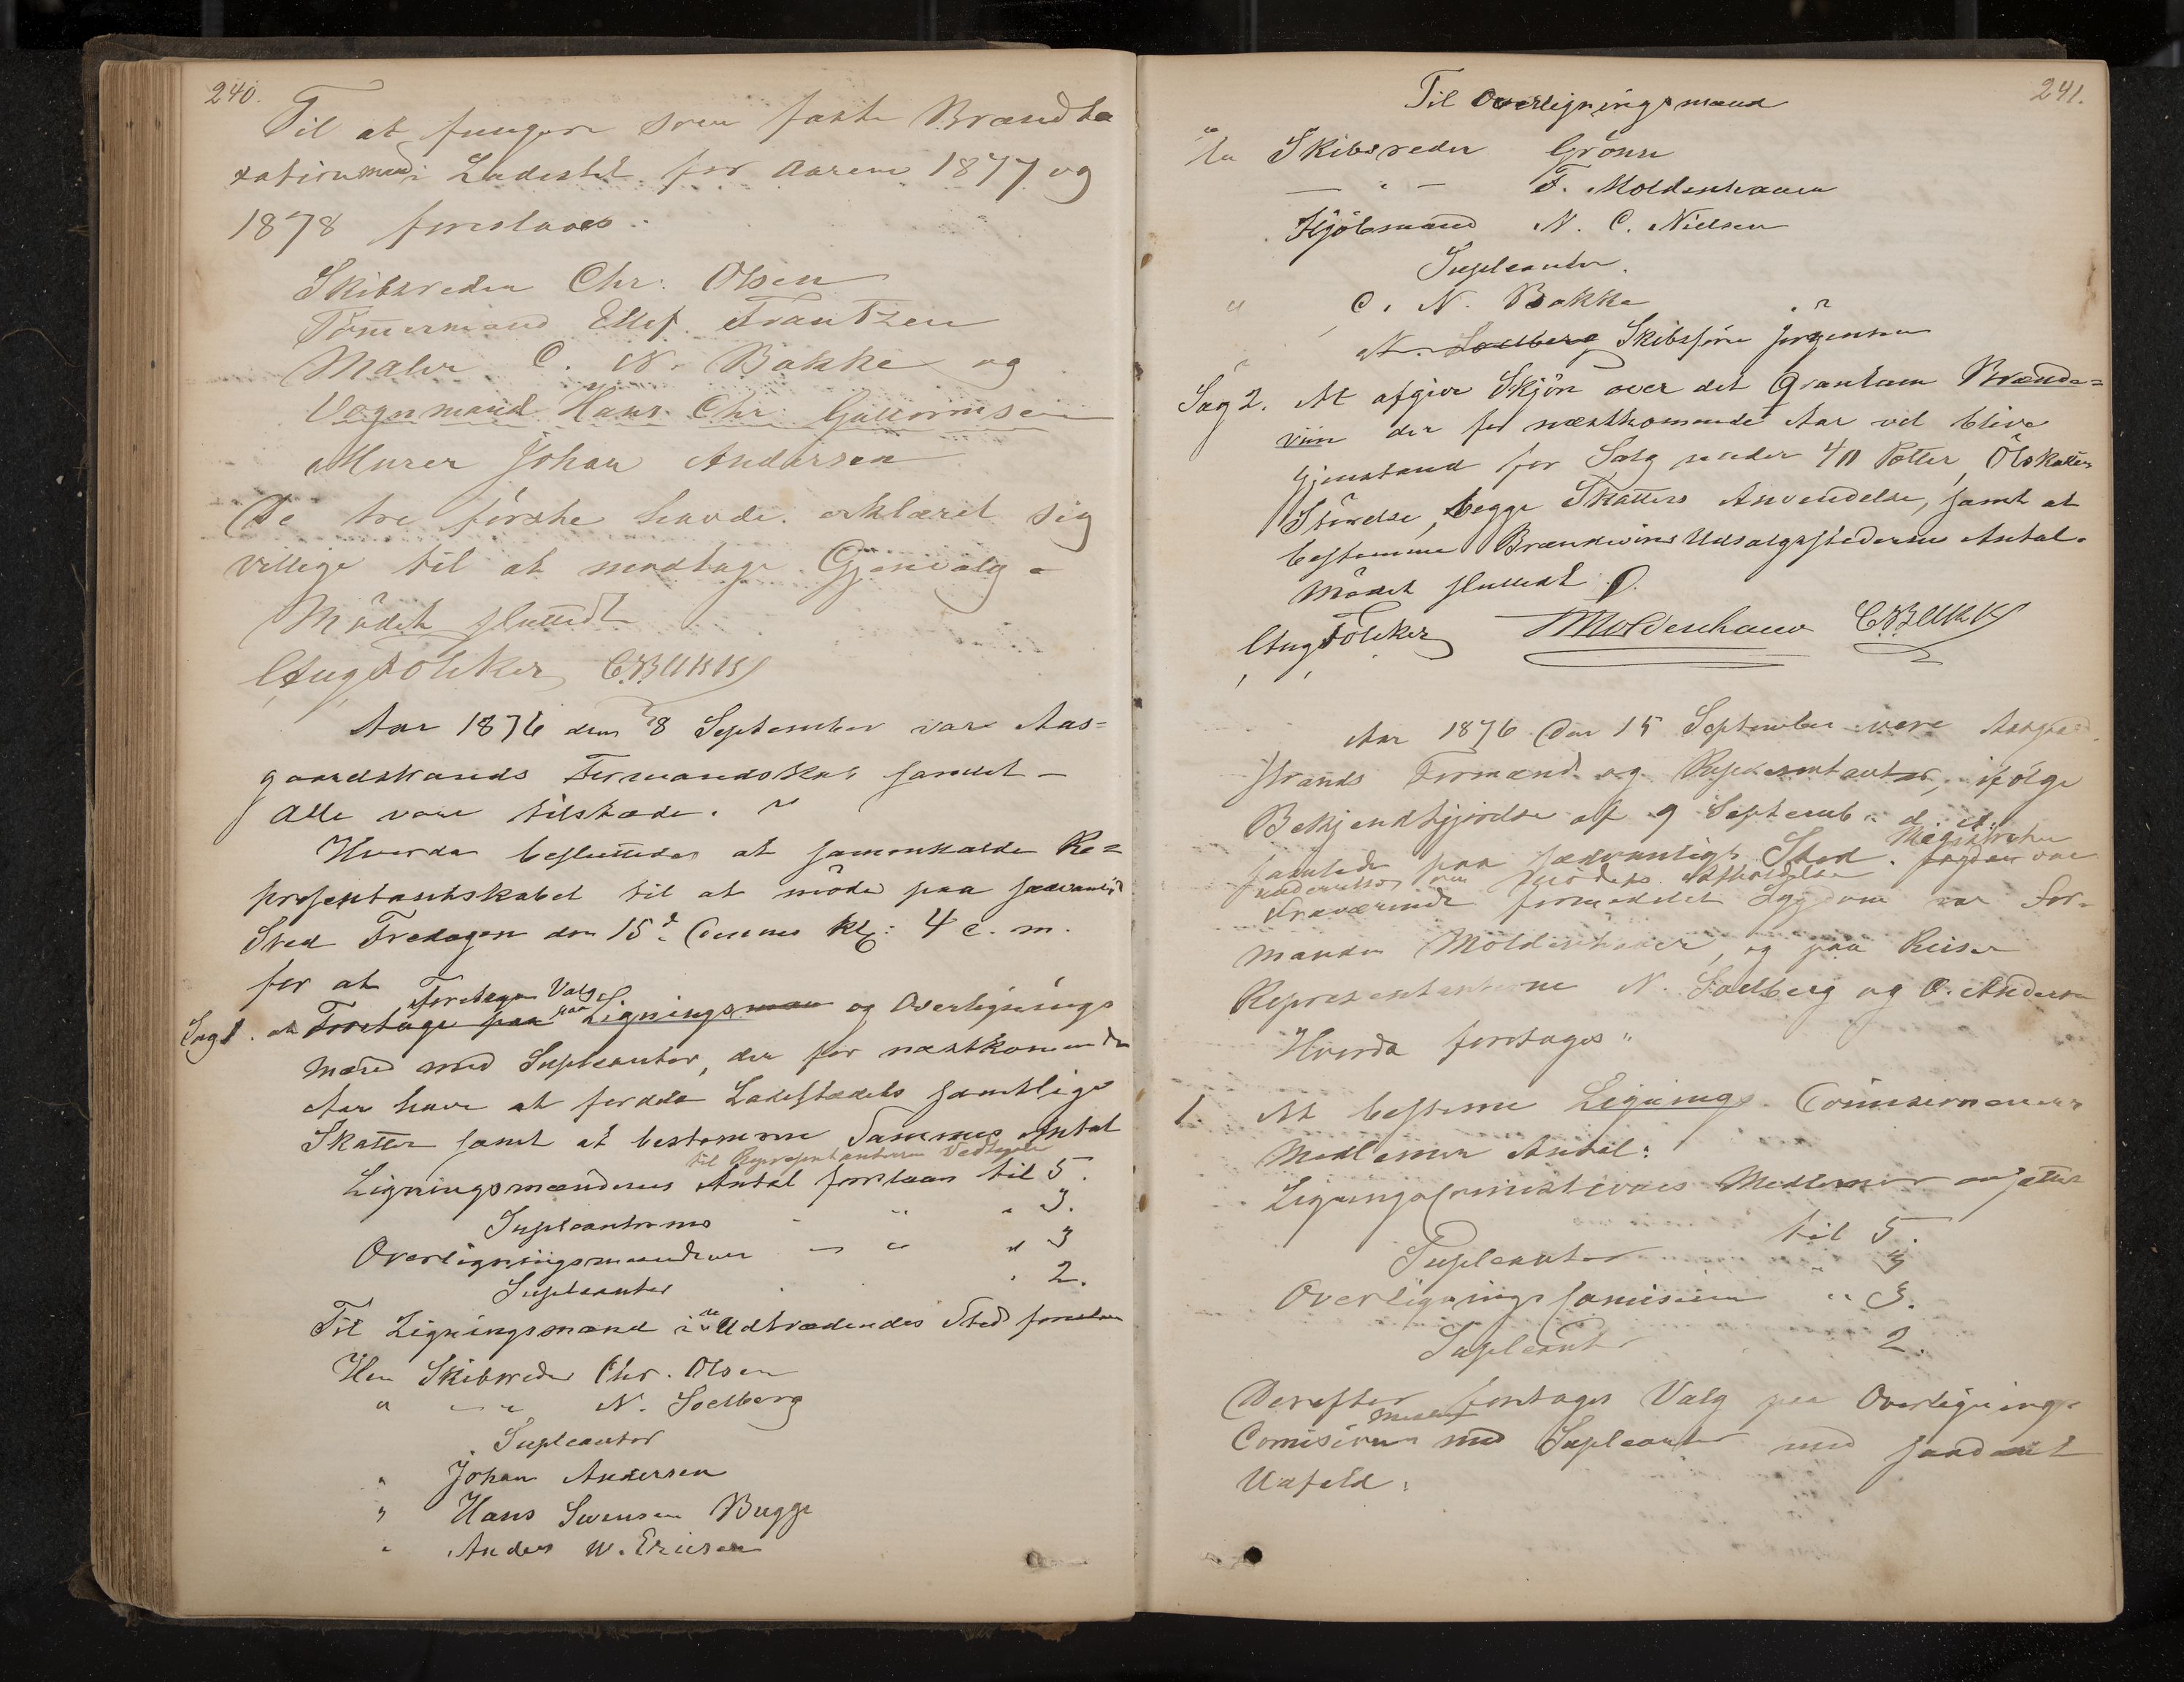 240.
Til at fungere som faste Brandta
xationsmænd i Ladestedet for Aarene 1877 og
1878 foreslaaes:
Skibsreder Chr: Olsen
Tömmermand Ellef Frantzen
Maler C. N. Bakke og
Vognmand Hans Chr: Gulbrandsen
Murer Johan Andersen
De tre förste havde erklæret sig
villige til at modtage Gjenvalg.
Mödet sluttedt
Aug Fölcker C.N. Bakke
Aar 1876 den 8 September vare Aas=
gaardstrands Formandskab samlet –
Alle vare tilstæde.
Hvorda besluttedes at sammenkalde Re=
presentantskabet til at möde paa sædvanlig
Sted Fredagen den 15d. dennes Kl: 4 e. m.
for at
foretage Valg
Sag 1. at Foretage paa paa Ligningsmæn og Overlignings
mænd med Supleanter, der for næstkommende
Aar have at fordele Ladestædets samtlige
Skatter samt at bestemme Sammes Antal
til Representanternes Vedtagelse
Ligningsmændenes Antal foreslaaes til 5.
Supleanterne " " 3.
Overligningsmændenes — " " 3
Supleanter " 2.
Til Ligningsmænd i de Udtrædendes Sted foreslaaes
Herr Skibsreder Chr. Olsen
" — " — N. Soelberg
Supleanter
" Johan Andersen
" Hans Svensen Bugge
" Anders W. Ericsen
241.
Til Overligningsmænd
Hr Skibsreder Grönn
— " — F. Moldenhauer
Kjöbmand N. C. Nielsen
Supleanter.
" C. N. Bakke
" N. Soelberg Skibsförer Jörgensen
Sag 2. At afgive Skjön over det Qvantum Brænde=
viin der for næstkommende Aar vil blive
Gjenstand for Salg under 40 Potter, Ölskattens
Störrelse, begge Skatters Anvendelse, samt at
bestemme Brændeviins Udsalgsstedernes Antal.
Mödet sluttedt
Aug Fölcker F Moldenhauer C.N. Bakke
Aar 1876 den 15 September vare Aasgaard
strands Formænd og Representanter, ifölge
Bekjendtgjörelse af 9 Septemb. d. A.
samlede paa sædvanligt Sted. Fogden Magistraten var
underrettet om Mödets Afholdelse
Fraværende formedelst Sygdom var For-
manden Moldenhauer, og paa Reise
Representanterne N. Soelberg og O. Andersen
Hvorda foretoges:
1. At bestemme Lignings Comissionens
Medlemmer Antal:
Ligningscomissionens Medlemmer ansættes
til 5.
Supleanter " 3
Overligningscomission " 3.
Supleanter 2.
Derefter foretoges Valg paa Overlignings
Comisionens Medlem med Supleanter med saadant
Udfald: